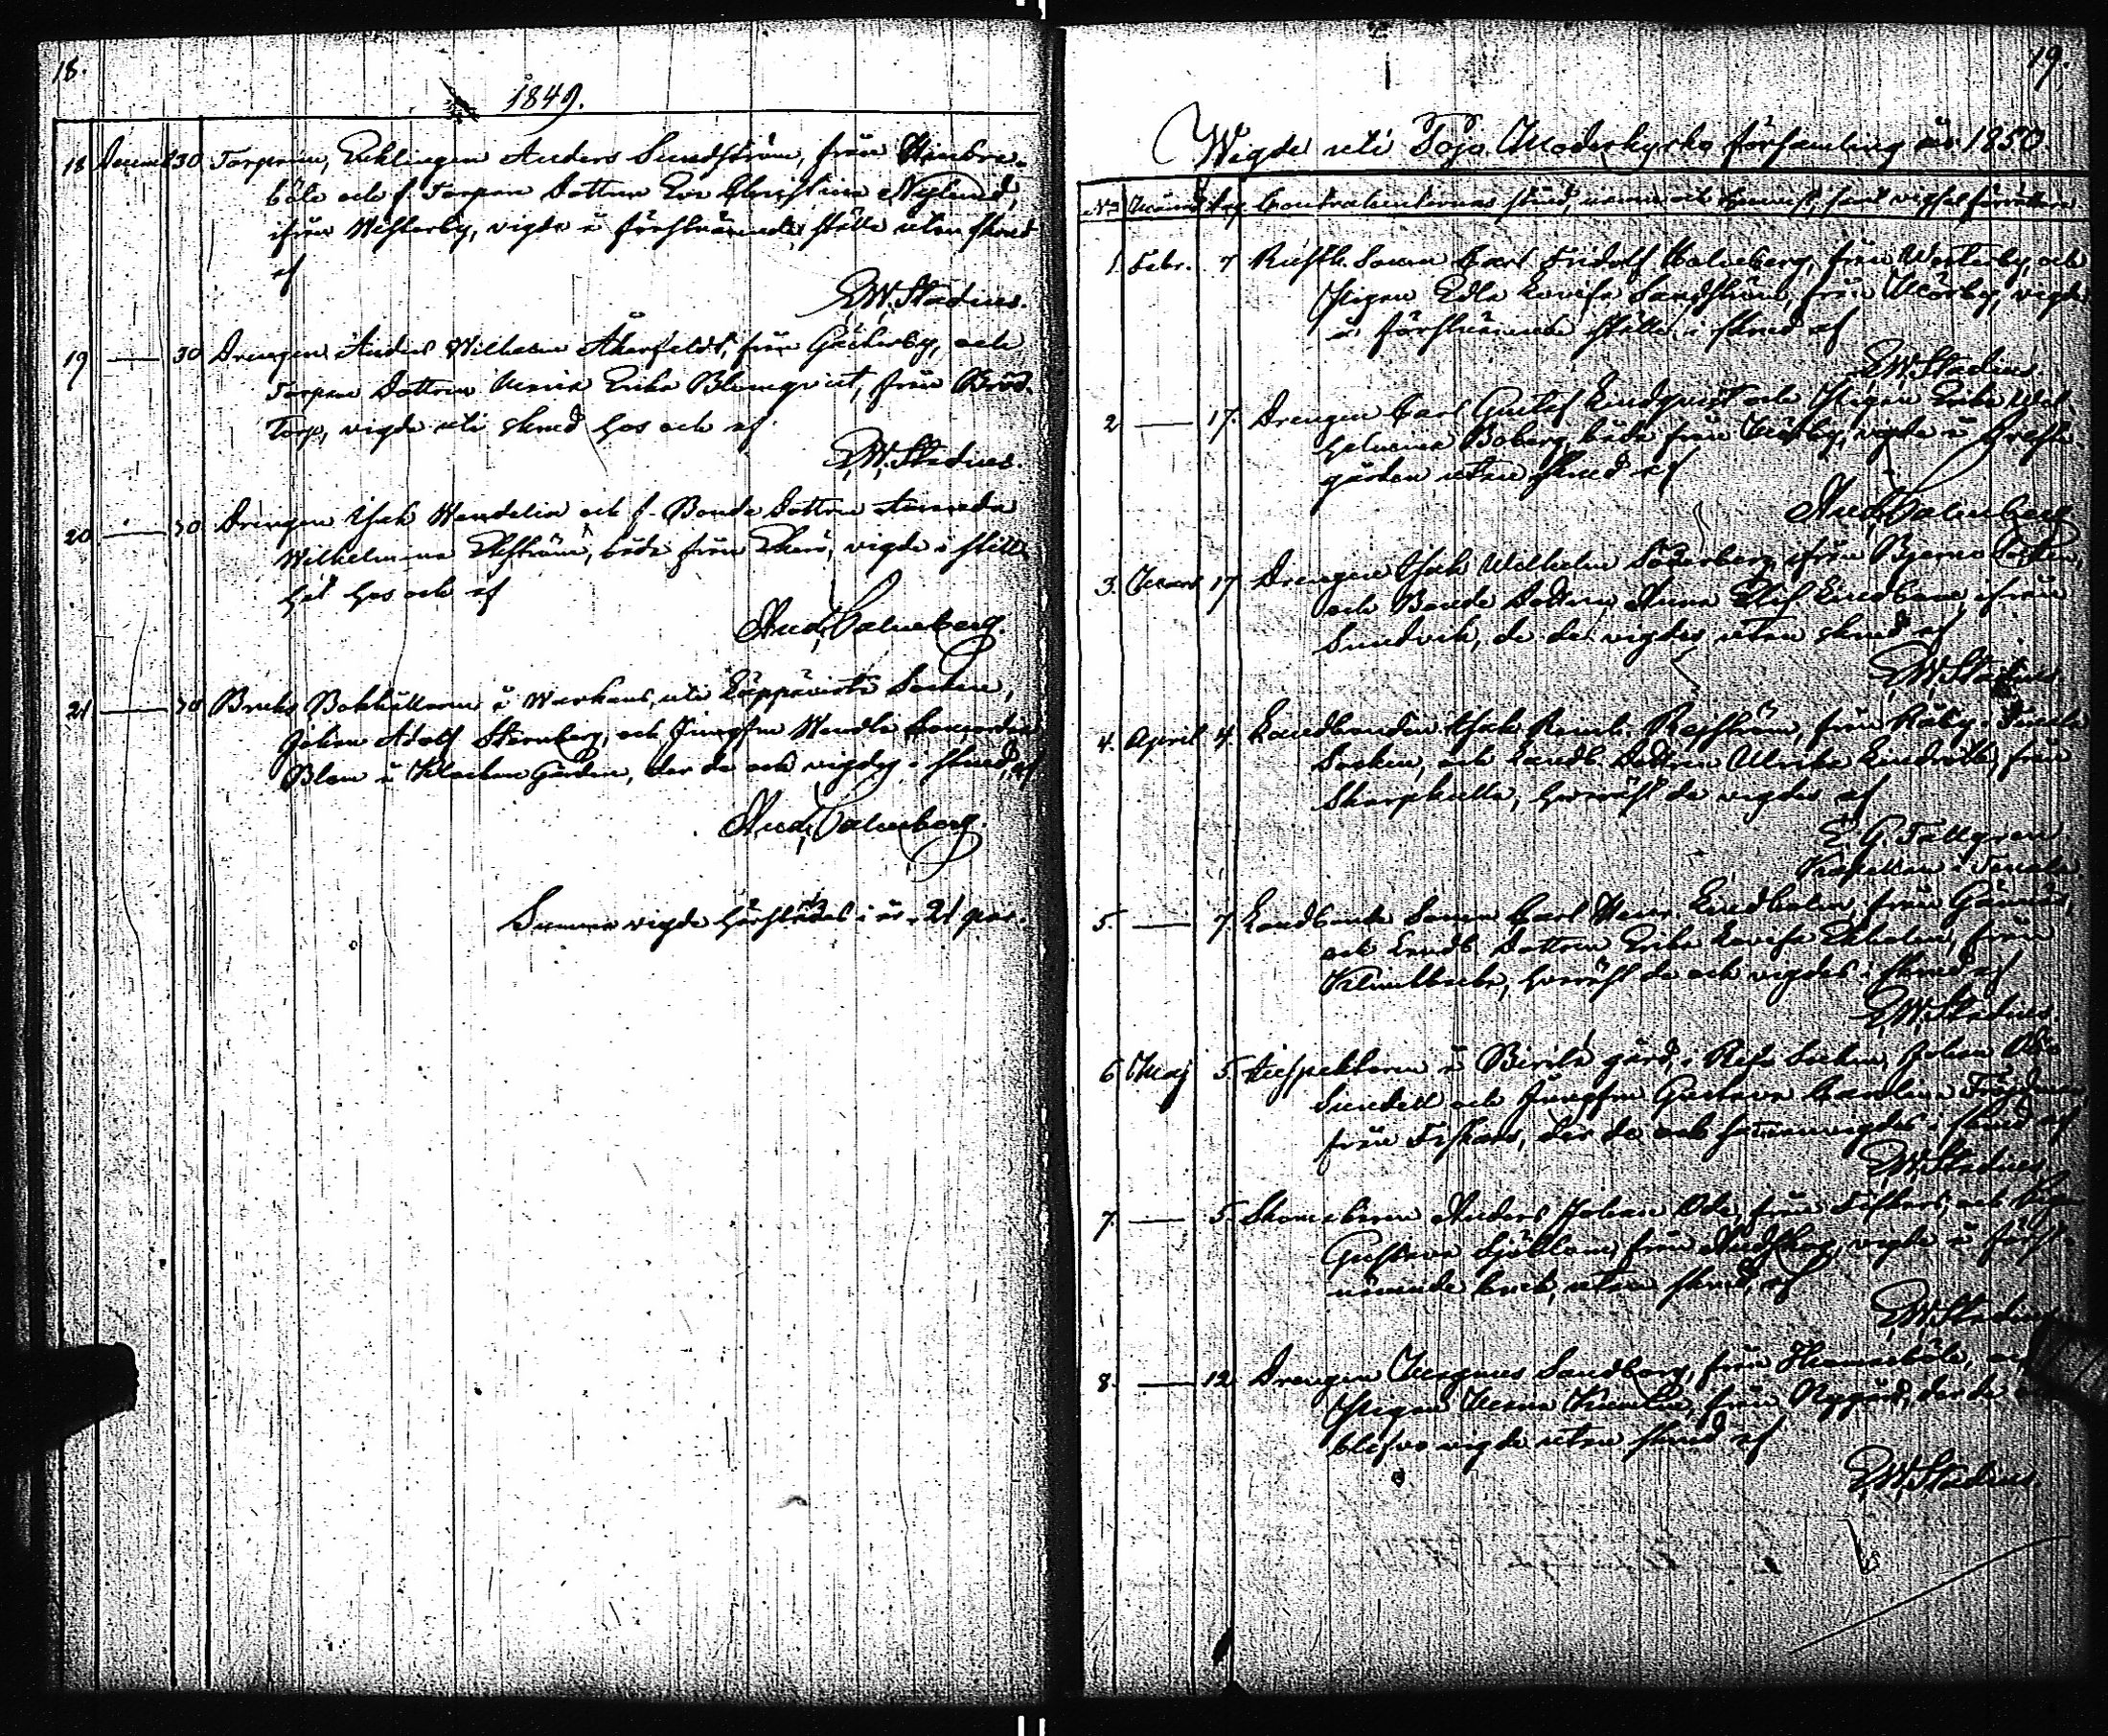 18.
1849.
18 Decemb 30 Torparen, Enklingen Anders Sundström, från Hindra-
böle och f. Torpare Dottren Eva Christina Nylund,
ifrån Westerby, vigde å förstnämnde ställe utan skrud
af
E.W. Stadius.
19 — 30 Drengen Anders Wilhelm Åkerfeldt, från Gäckerby, och
Torpare Dottren Maria Erika Blomqvist, från Broo-
Torp, vigde uti skrud hos och af
E.W. Stadius.
20 — 30 Drengen Isak Wendelin och f. Bonde Dottren Amanda
Wilhelmina Ekström, både från Ekerö, vigde i still-
het hos och af
And. Palmberg.
21 — 30 Bruks Bokhållaren å Warkaus, uti Leppävirta Socken,
Johan Adolf Sternberg, och Jungfru Wendla
Blom å Klockare Gården, der de och vigdes i skrud, af
And. Palmberg.
Summa vigde härstädes i år 21 par.
19.
Wigde uti Pojo Moderkyrko församling år 1850.
No Månad dag Contrahenternas stånd, namn och hemvist, samt vigsel förrättare
1. Febr. 7 Rusth. Sonen Carl Fridolf Malmberg, från Westerby, och
Pigan Edla Lovisa Sandström, från Mörby, vigde
å förstnämnde ställe i skrud af
E.W. Stadius
2 — 17. Drengen Carl Gustaf Lindqvist och Pigan Erika Wil-
helmina Boberg, både från Mörby, vigde å Prest-
gården utan skrud af
And. Palmberg
3. Mars 17 Drengen Isak Wilhelm Söderberg, ifrån Bjerno Socken,
och Bonde Dottren Anna Lindbom, ifrån
Sundvik, de der vigdes utan skrud af
E.W. Stadius
4. April 4. Landbonden Isak Reinh. från Råby i Tenala
Socken, och Landb. Dottren Ulrika Lindroth, från
Skarpkulla, hvaräst de vigdes af
E G. Fättgren
Kapellan i Tenala
5. — 7. Landbonde Sonen Carl Henr. Lindholm, från Gännäs,
och Landb. Dottren Erika Lovisa Ekholm, från
Klinkbacka, hvaräst de och vigdes i skrud af
E.W. Stadius.
6 Maj 5. Inspektoren å gård, i Socken, Johan
Sundell och Jungfru Gustava Carolina
från Fiskars, der de och sammanvigdes i skrud af
E.W. Stadius
7. — 5. Skomakaren Anders Johan från Fiskars, och Pigan
Gustava Sjöblom, från vigde å först-
nämnde bruk, utan skrud, af
E.W. Stadius
8. — 12 Drengen Magnus Sandberg, från
Pigan Maria från Nygård, der de
blefvo vigde utan skrud af
E.W. Stadius.